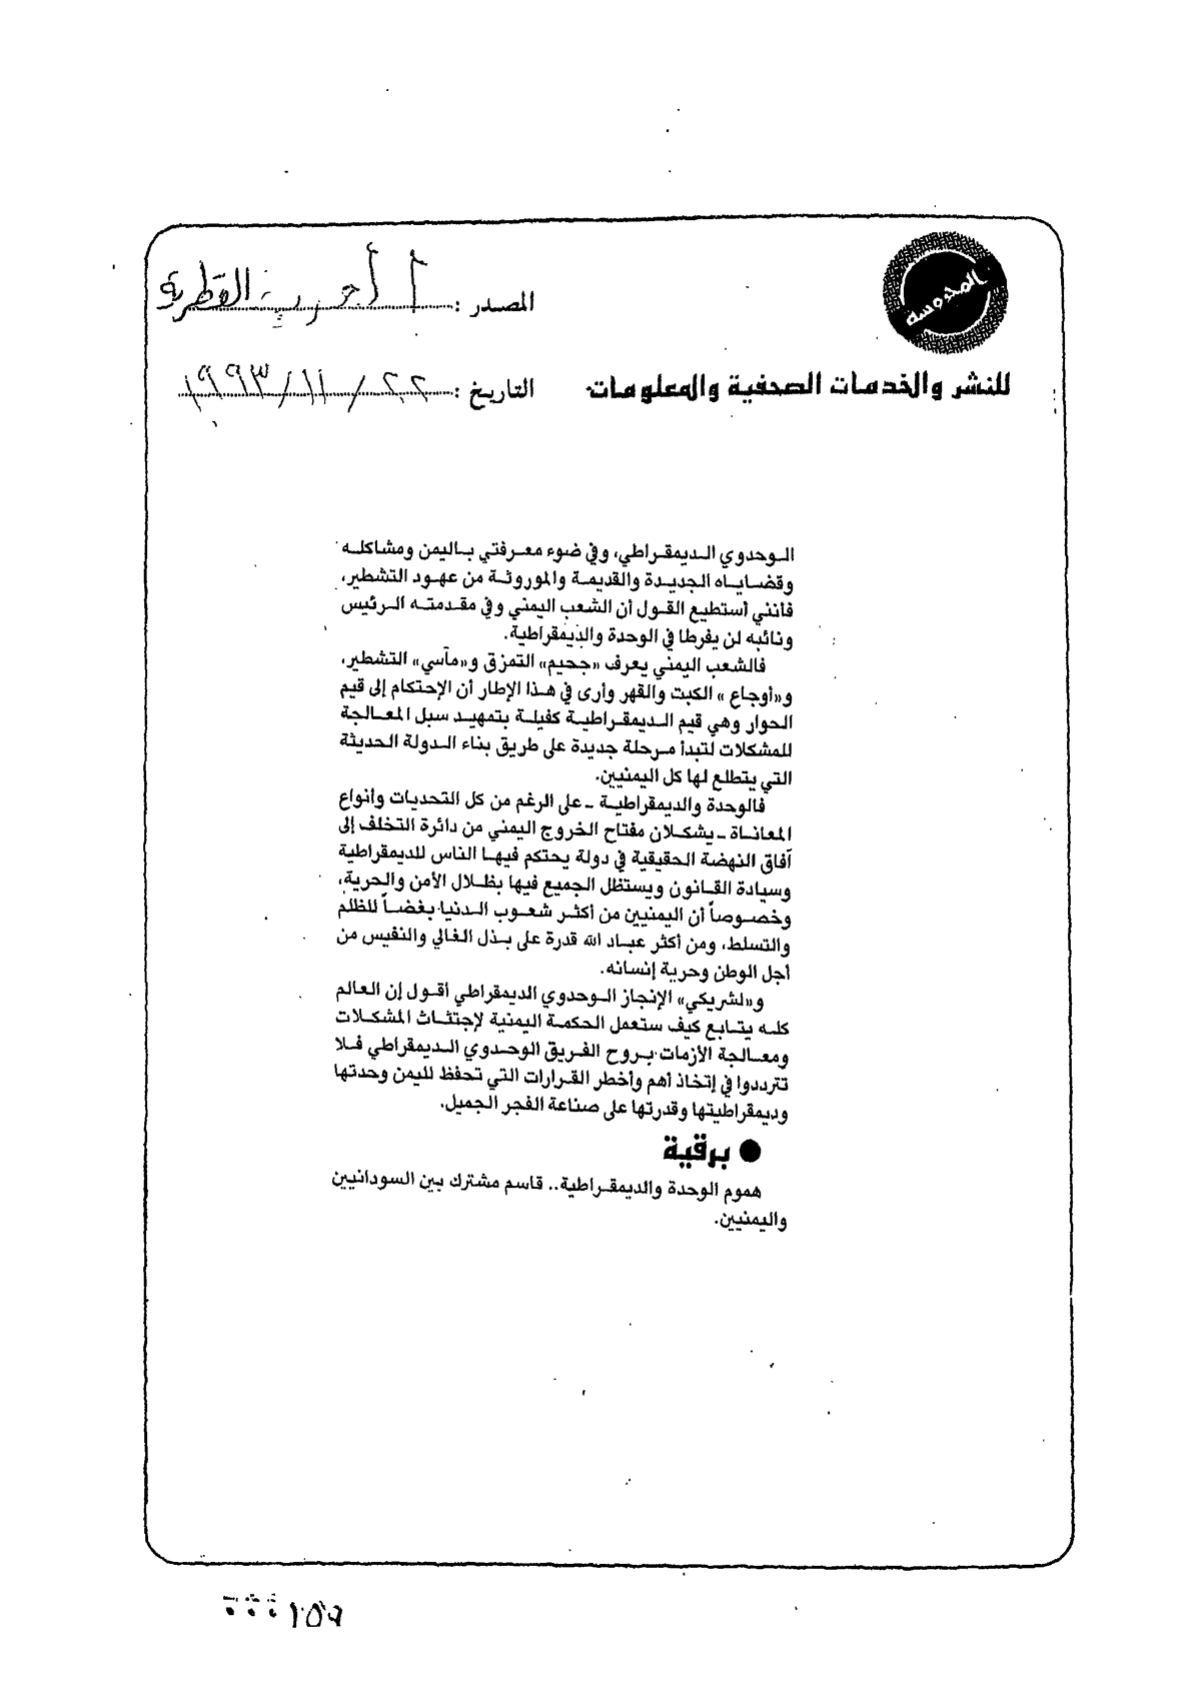 المحروسة
المصدر :
القطرية
للنشر والخدمات الصحفية والمعلومات
التاريخ : ٢٢ / ١١ / ١٩٩٣
الوحدوي الديمقراطي، وفي ضوء معرفتي باليمن ومشاكله
وقضاياه الجديدة والقديمة والموروثة من عهود التشطير،
فأنني أستطيع القول أن الشعب اليمني وفي مقدمته الرئيس
ونائبه لن يفرطا في الوحدة والديمقراطية.
فالشعب اليمني يعرف «جحيم» التمزق و«مآسي» التشطير،
و«أوجاع» الكبت والقهر وأرى في هذا الإطار أن الإحتكام إلى قيم
الحوار وهي قيم الديمقراطية كفيلة بتمهيد سبل المعالجة
للمشكلات لتبدأ مرحلة جديدة على طريق بناء الدولة الحديثة
التي يتطلع لها كل اليمنيين.
فالوحدة والديمقراطية ـ على الرغم من كل التحديات وانواع
المعاناة ـ يشكلان مفتاح الخروج اليمني من دائرة التخلف إلى
آفاق النهضة الحقيقية في دولة يحتكم فيها الناس للديمقراطية
وسيادة القانون ويستظل الجميع فيها بظلال الأمن والحرية،
وخصوصاً أن اليمنيين من أكثر شعوب الدنيا بغضاً للظلم
والتسلط، ومن أكثر عباد الله قدرة على بذل الغالي والنفيس من
أجل الوطن وحرية إنسانه.
و«لشريكي» الإنجاز الوحدوي الديمقراطي أقول إن العالم
كله يتابع كيف ستعمل الحكمة اليمنية لإجتثاث المشكلات
ومعالجة الأزمات بروح الفريق الوحدوي الديمقراطي فلا
تترددوا في إتخاذ أهم وأخطر القرارات التي تحفظ لليمن وحدتها
وديمقراطيتها وقدرتها على صناعة الفجر الجميل.
● برقية
هموم الوحدة والديمقراطية.. قاسم مشترك بين السودانيين
واليمنيين.